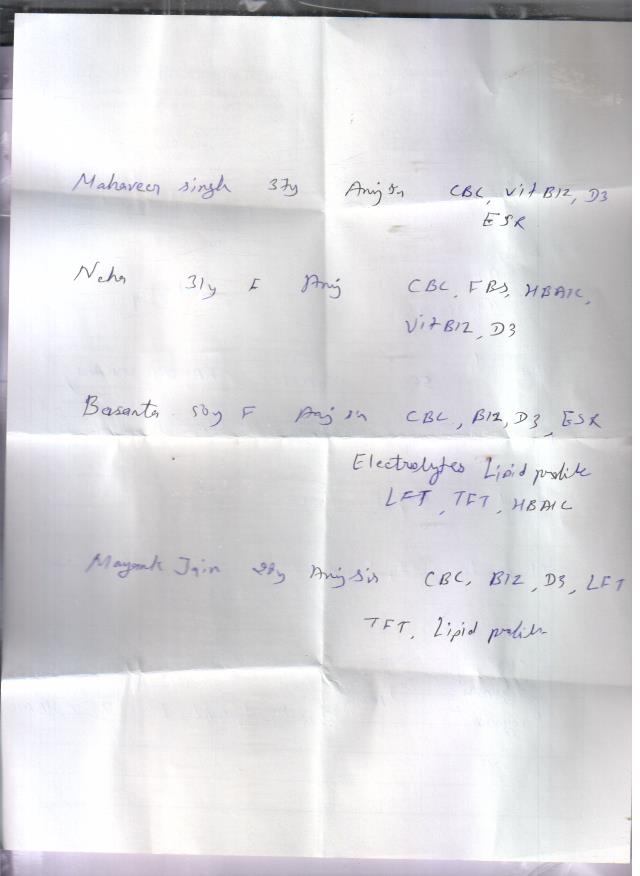 Mahaveer singh 37y Anuj Sir CBC, Vit B12, D3
ESR
Neha 31y F Anuj CBC, FBS, HBA1C,
Vit B12, D3
Basanta 50y F Anuj Sir CBC, B12, D3, ESR
Electrolytes Lipid profile
LFT, TFT, HBA1C
Mayank Jain 28y Anuj Sir CBC, B12, D3, LFT
TFT, Lipid profile